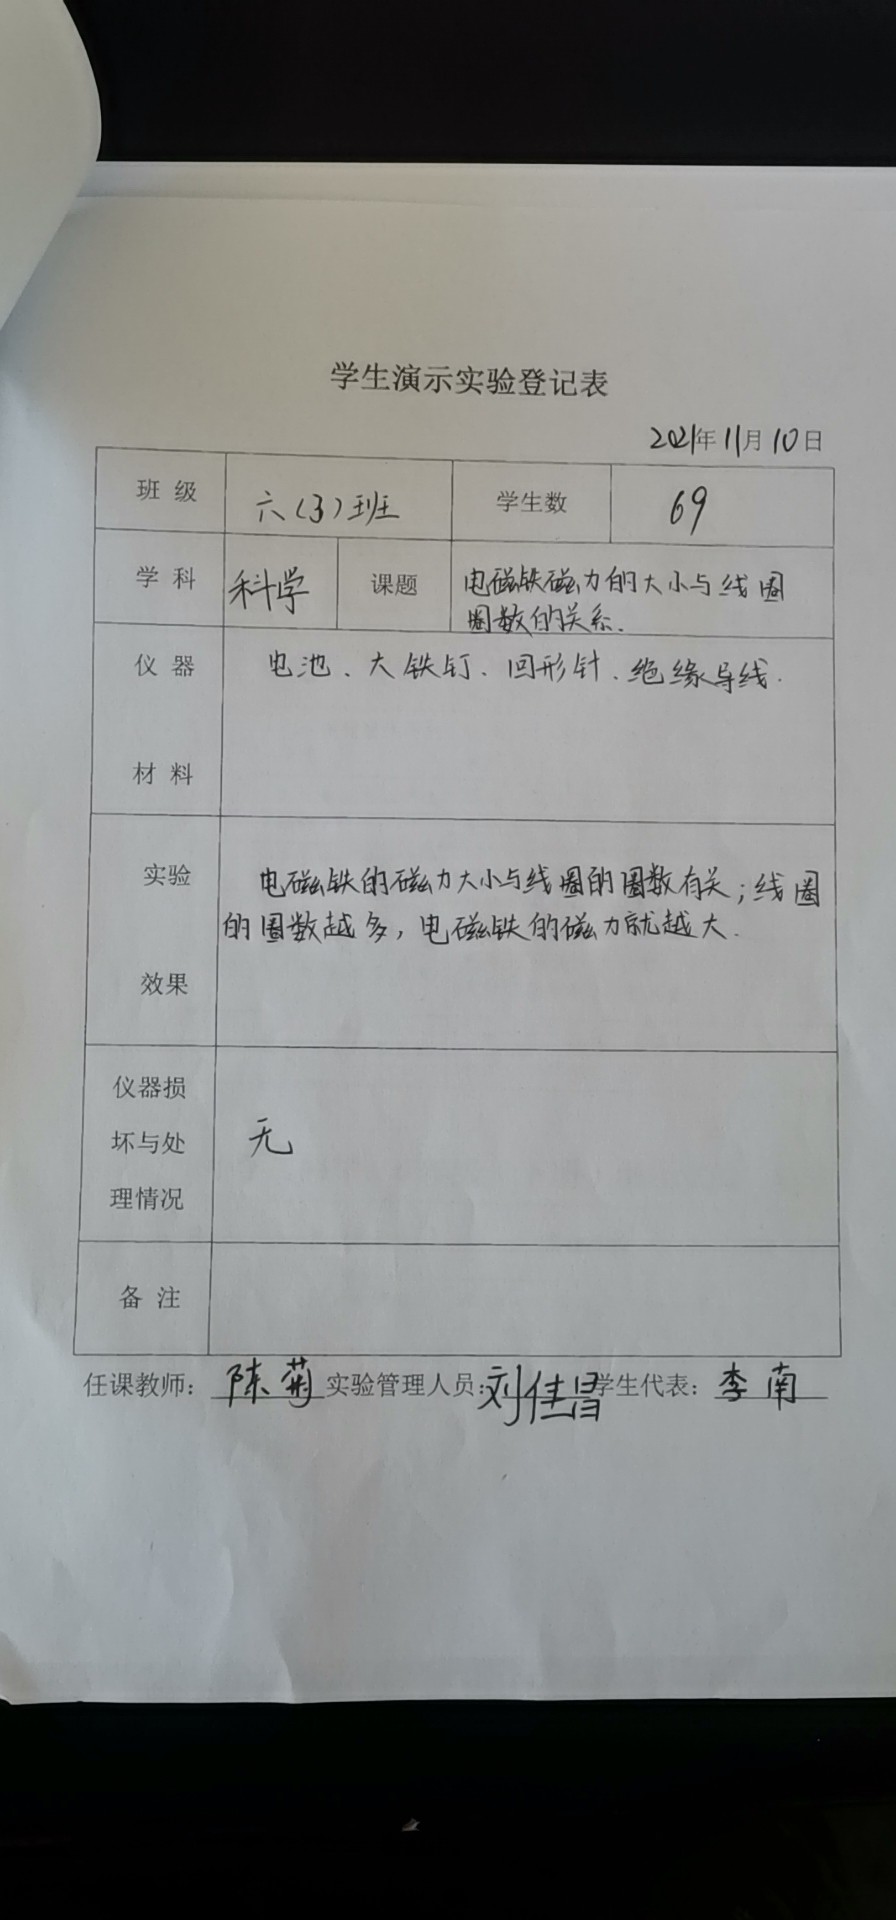 学生演示实验登记表
2021年11月10日
班 级 六(3)班 学生数 69
学 科 科学 课题 电磁铁磁力的大小与线圈
圈数的关系.
仪 器 电池、大铁钉、回形针、绝缘导线.
材 料
实验 电磁铁的磁力大小与线圈的圈数有关;线圈
的圈数越多,电磁铁的磁力就越大.
效果
仪器损
坏与处 无
理情况
备 注
任课教师: 陈菊 实验管理人员: 刘佳 学生代表: 李南